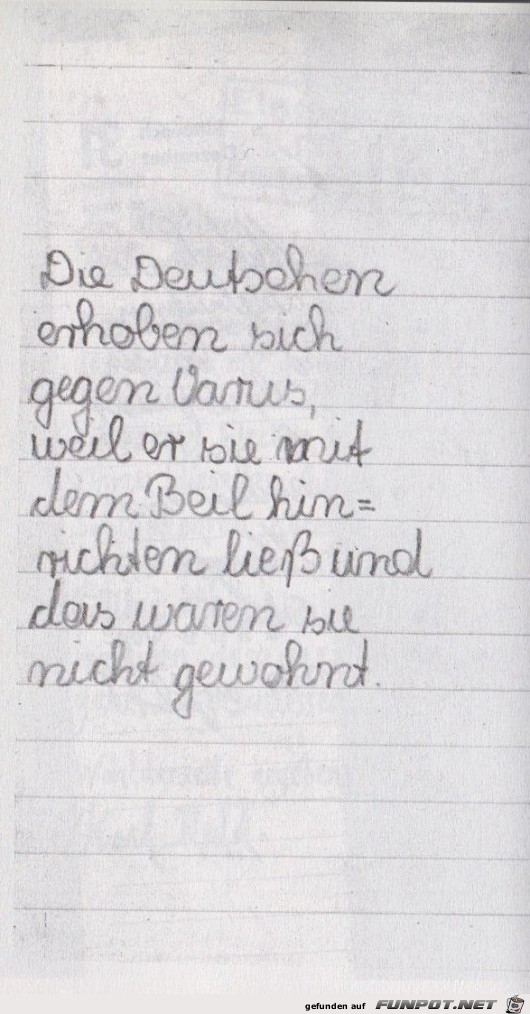 Die Deutschen
erhoben sich
gegen Varus,
weil er sie mit
dem Beil hin=
richten ließ und
das waren sie
nicht gewohnt.
gefunden auf FUNPOT.NET